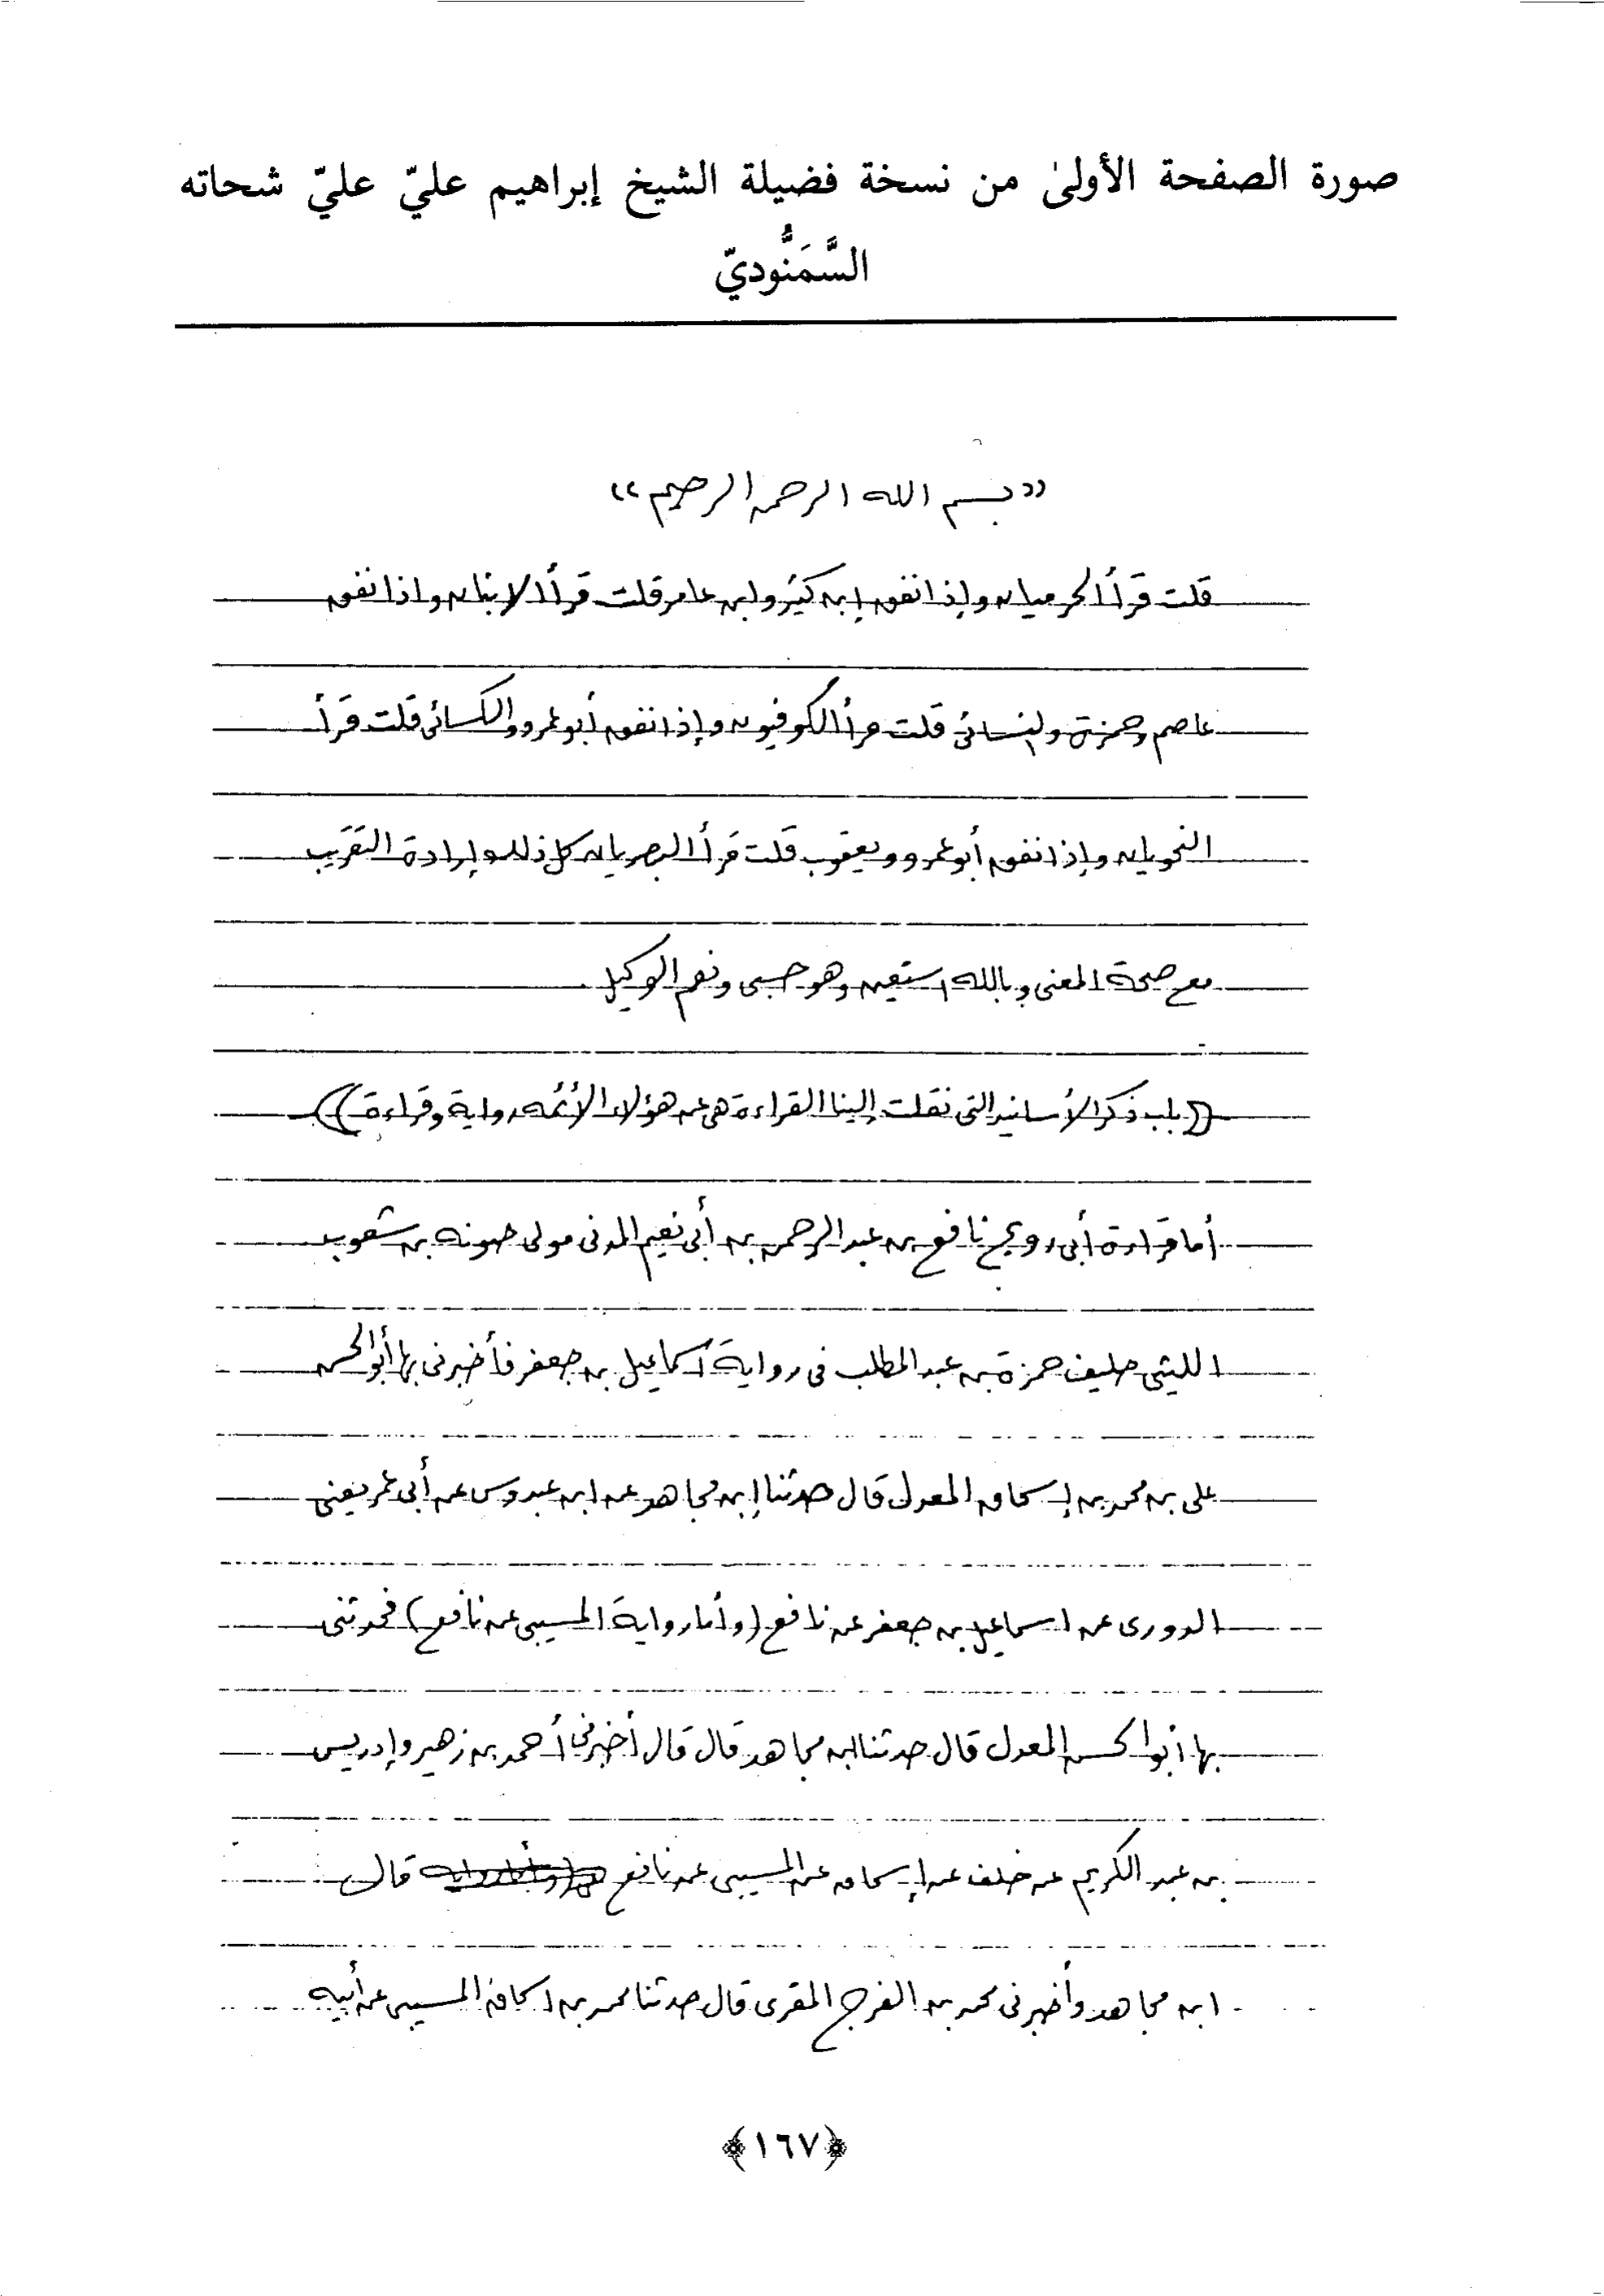 صورة الصفحة الأولىٰ من نسخة فضيلة الشيخ إبراهيم عليّ عليّ شحاته
السَّمَنُّوديّ
«بسم الله الرحمن الرحيم»
قلت قرأ الحرميان وإذا اتفق ابن كثير وابن عامر قلت قرأ الابنان وإذا اتفق
عاصم وحمزة والكسائى قلت قرأ الكوفيون وإذا اتفق أبو عمرو والكسائى قلت قرأ
النحويان وإذا اتفق أبو عمرو ويعقوب قلت قرأ البصريان كل ذلك إرادة التقريب
مع صحة المعنى وبالله استعين وهو حسبى ونعم الوكيل
((باب ذكر الأسانيد التى نقلت إلينا القراءة هى عن هؤلاء الأئمه رواية وقراءة))
أما قراءة أبى رويم نافع بن عبد الرحمن بن أبى نعيم المدنى مولى جعونه بن شعوب
الليثى حليف حمزة بن عبد المطلب فى رواية اسماعيل بن جعفر فأخبرنى بها أبو الحسن
على بن محمد بن إسحاق المعدل قال حدثنا ابن مجاهد عن ابن عبدوس عن أبى عمر يعنى
الدورى عن اسماعيل بن جعفر عن نافع (وأما رواية المسيبى عن نافع) فحدثنى
بها أبو الحسن المعدل قال حدثنا ابن مجاهد قال قال أخبرنى أحمد بن زهير وإدريس
بن عبد الكريم عن خلف عن إسحاق عن المسيبى عن نافع قال
ابن مجاهد وأخبرنى محمد بن الفرج المقرى قال حدثنا محمد بن اسحاق المسيبى عن أبيه
﴿١٦٧﴾